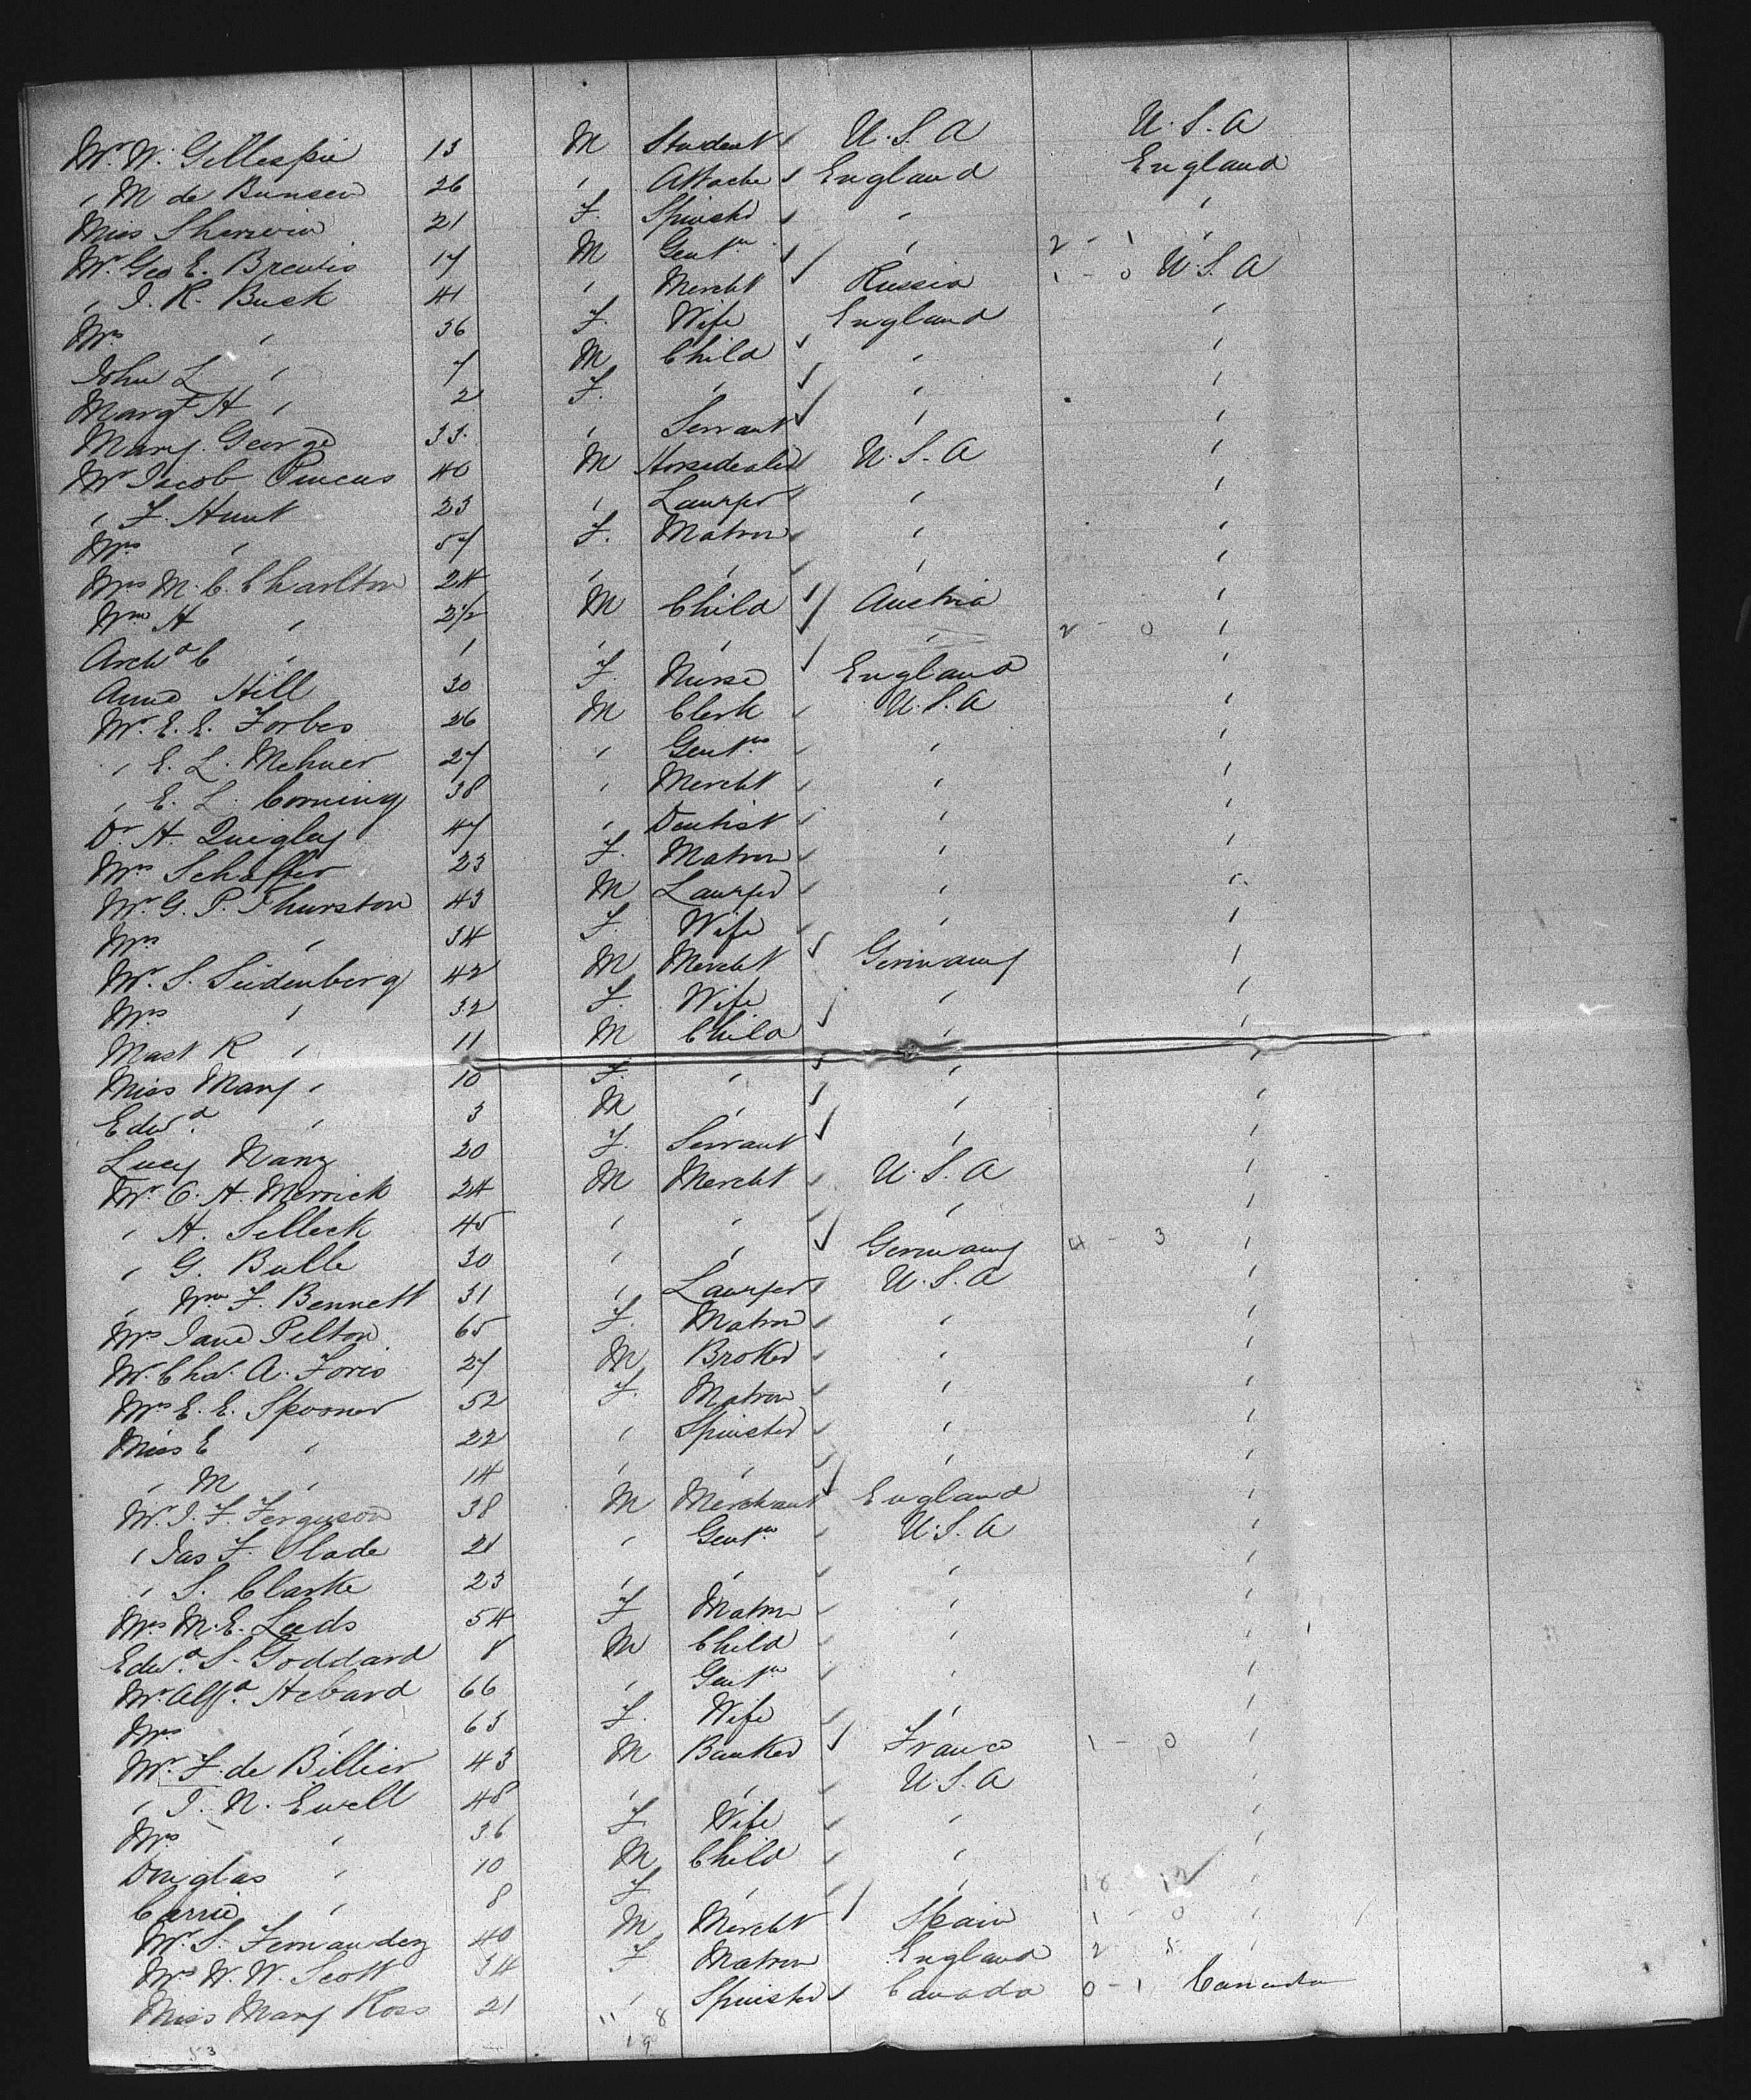 Mr. W. Gillespie 13 M Student U.S.A U.S.A
" M de Bunsen 26 " Attache England England
Miss Sherwin 21 F. Spinster " "
Mr. Geo E. 17 M Gentn. " 2 - 1 "
" J. R. Buck 41 " Mercht Russia 1 - 0 U.S.A
Mrs " 36 F. Wife England "
John L " 7 M Child " "
Margt H " 2 F. " " "
Mary George 33. " Servant " "
Mr Jacob Pincus 40 M Horsedealer U.S.A "
" F. Hunt 23 " Lawyer " "
Mrs " 57 F. Matron " "
Mrs M. C. Charlton 24 " " " "
Wm H " 2½ M Child Austria "
Archd C " 1 " " " 2 - 0 "
Anne Hill 30 F. Nurse England "
Mr. E. E. Forbes 26 M Clerk U.S.A "
" E. L. 27 " Gentn " "
" E. L. Corning 38 " Mercht " "
Dr H. Quigley 47 " Dentist " "
Mrs Schaffer 23 F. Matron " "
Mr. G. P. Thurston 43 M Lawyer " "
Mrs " 34 F. Wife " "
Mr. S. Seidenberg 42 M Mercht Germany "
Mrs " 32 F. Wife " "
Mast R " 11 M Child " "
Miss Mary " 10 F. " " "
Edwd " 3 M " " "
Lucy Nanz 20 F. Servant " "
Mr. C. H. Merrick 24 M Mercht U.S.A "
" H. Selleck 45 " " " "
" G. Bulle 30 " " Germany 4 - 3 "
" Wm F. Bennett 31 " Lawyer U.S.A "
Mrs Jane Pelton 65 F. Matron " "
Mr. Chs. A. 27 M Broker " "
Mrs E. E. Spooner 52 F. Matron " "
Miss E " 22 " Spinster " "
" M " 14 " " " "
Mr. J. F. Ferguson 38 M Merchant England "
" Jas F. Slade 21 " Gentn U.S.A "
" S. Clarke 23 " " " "
Mrs M. E. Leeds 54 F Matron " "
Edwd. S. Goddard 8 M Child " "
Mr. Alfd. Hebard 66 " Gentn " "
Mrs " 63 F. Wife " "
Mr. F. de Billier 43 M Banker France 1 - 0 "
" J. N. Ewell 48 " " U.S.A "
Mrs " 36 F Wife " "
Douglas " 10 M Child " "
Carrie " 8 F " " 18 - 12 "
Mr. S. Fernandez 40 M Mercht Spain 1 - 0 "
Mrs W. W. Scott 34 F Matron England 2 - 5 "
Miss Mary Ross 21 " Spinster Canada 0 - 1 Canada
11 8
53 19